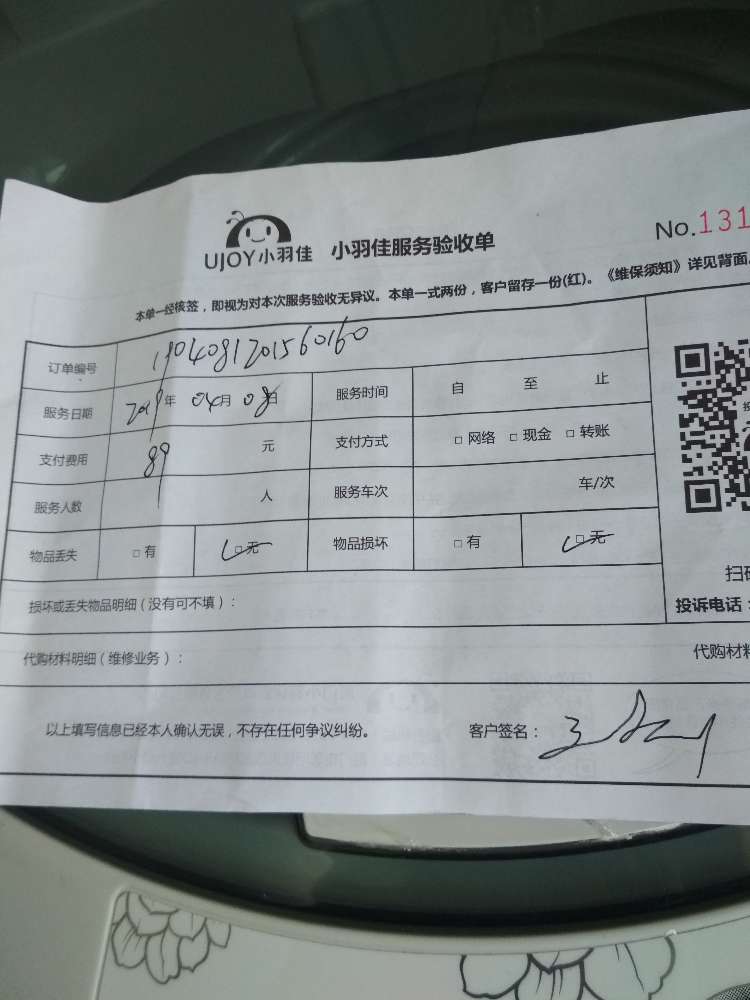 UJOY小羽佳 小羽佳服务验收单 No.131
本单一经核签，即视为对本次服务验收无异议。本单一式两份，客户留存一份(红)。《维保须知》详见背面。
订单编号 1904081201560160
服务日期 2019年 04月 08日 服务时间 自 至 止
支付费用 89 元 支付方式 □ 网络 □ 现金 □ 转账
服务人数 1 人 服务车次 车/次
物品丢失 □ 有 □ 无 物品损坏 □ 有 □ 无
扫
损坏或丢失物品明细（没有可不填）： 投诉电话：
代购材料明细（维修业务）： 代购材料
以上填写信息已经本人确认无误，不存在任何争议纠纷。 客户签名：